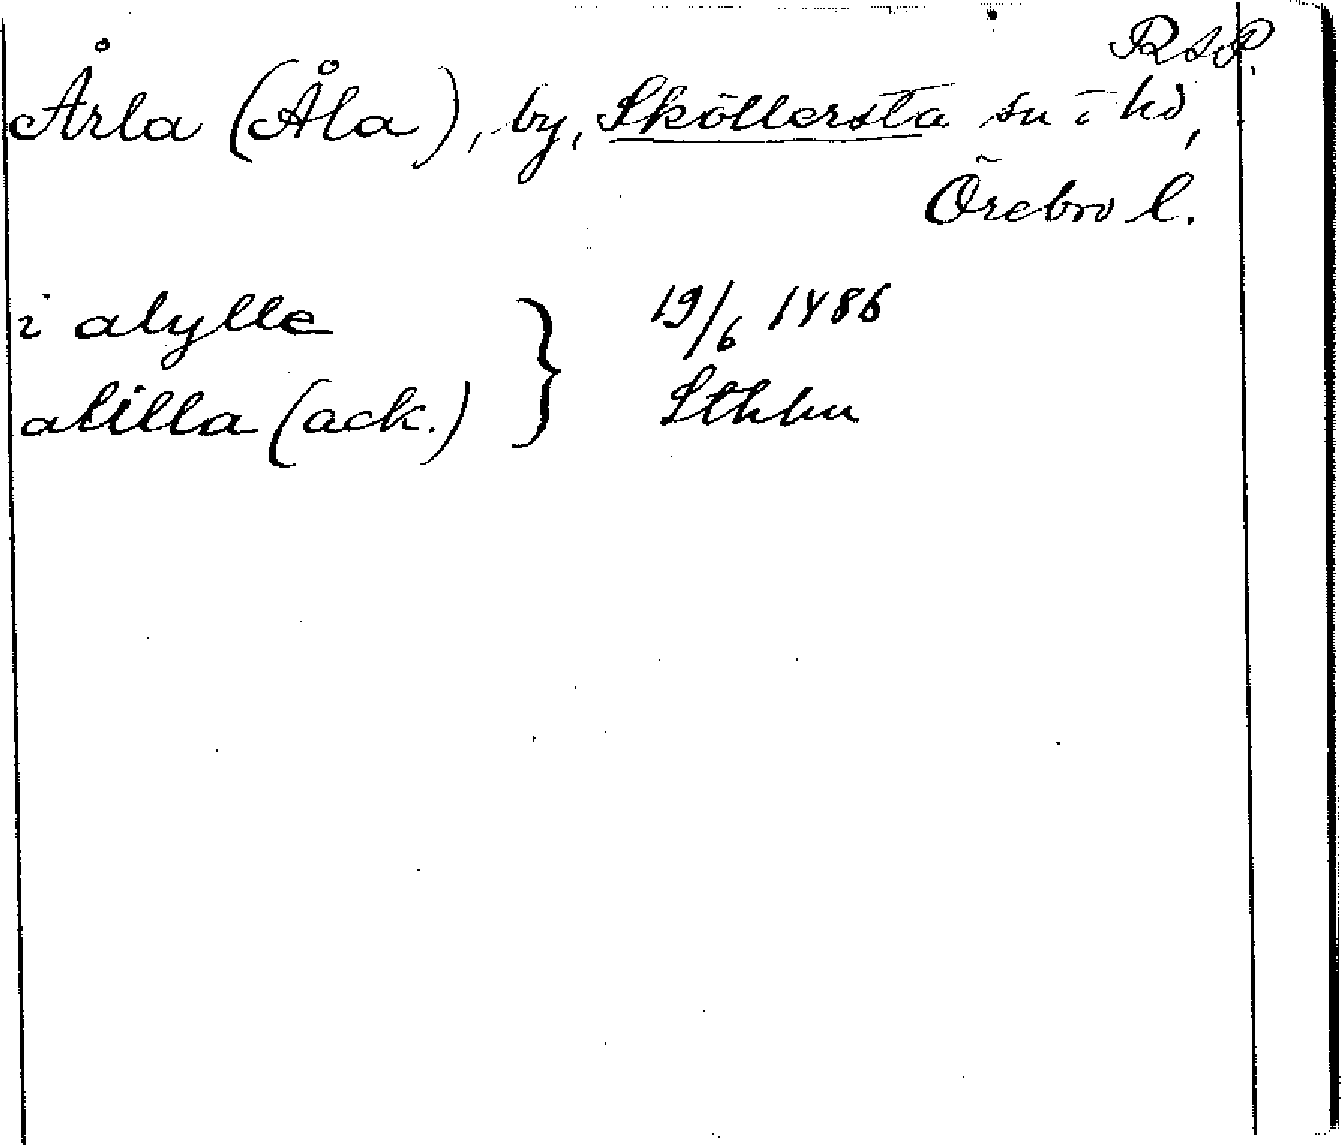 RAP.
Årla (Åla), by, Sköllersta sn o hd,
Örebro l.
i alylle
alilla (ack.) } 19/6 1486
Sthlm